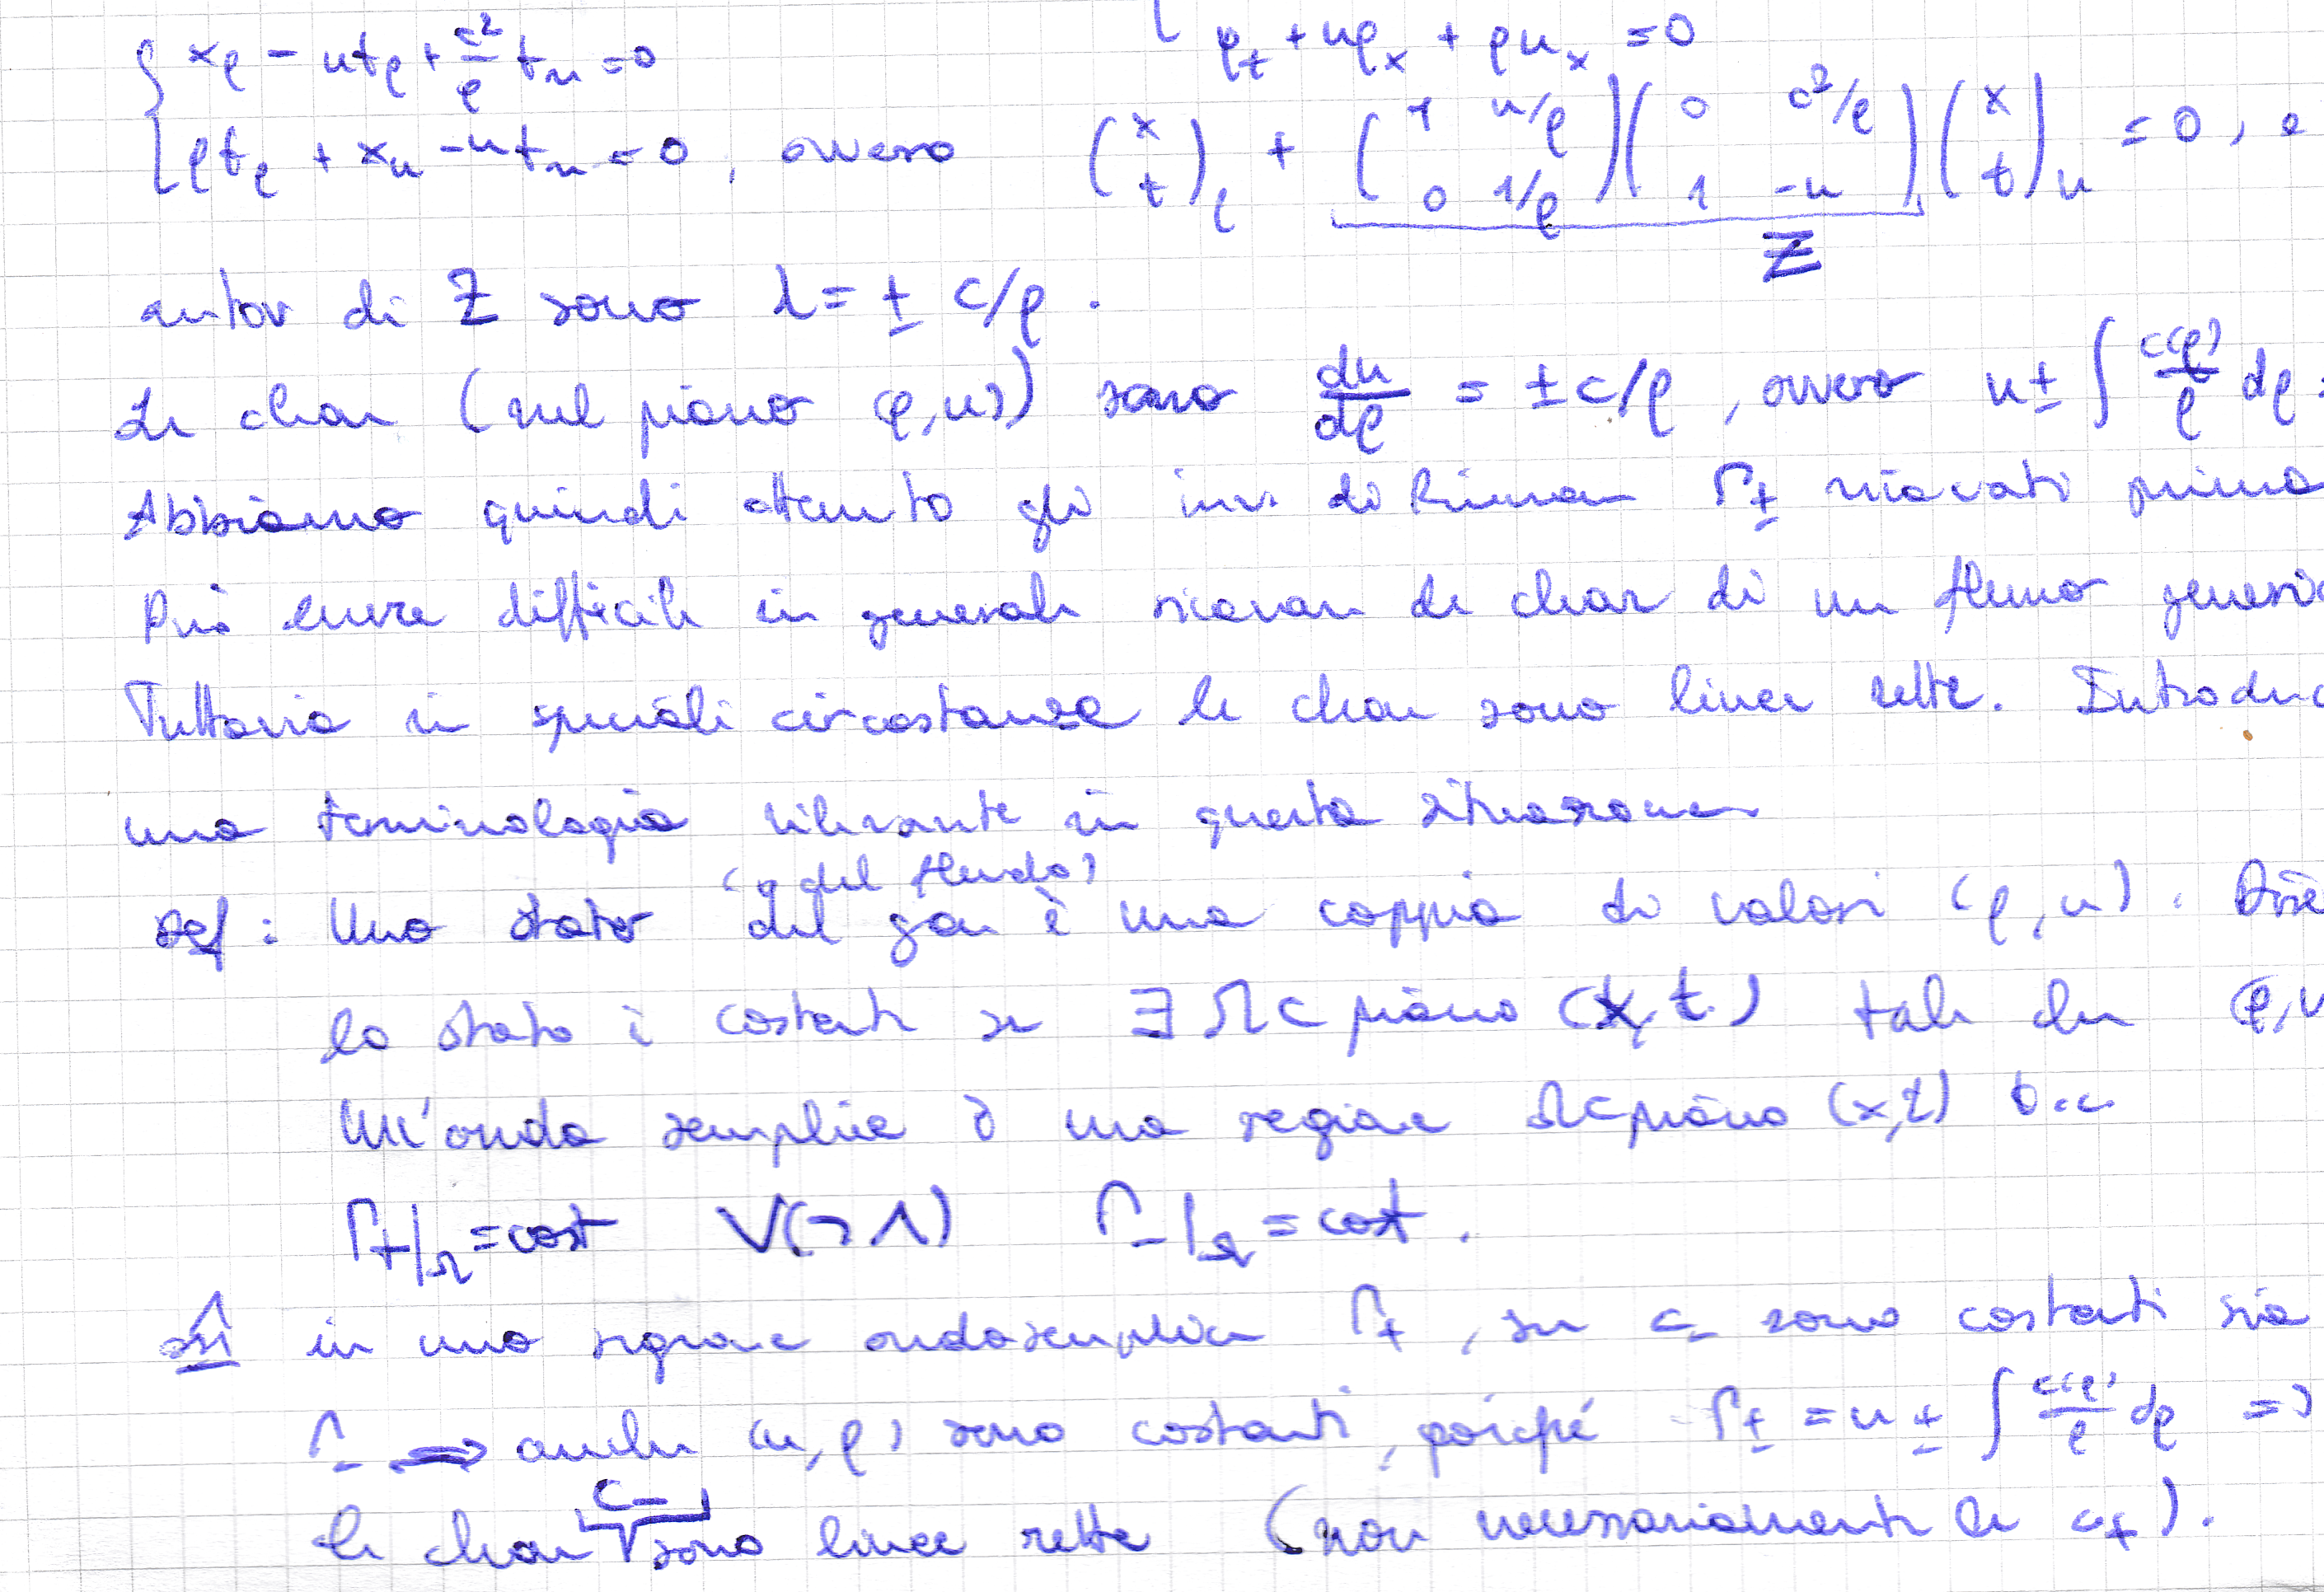 { x_ρ - u t_ρ + c²/ρ t_u = 0
ρ_t + uρ_x + ρu_x = 0
ρt_ρ + x_u - u t_u = 0, ovvero (x t)_ρ + (1 u/ρ 0 1/ρ)(0 c²/ρ 1 -u)(x t)_u = 0, e
Z
autov di Z sono λ = ± c/ρ.
Le char (nel piano (ρ,u)) sono du/dρ = ± c/ρ, ovvero u ± ∫ c(ρ)/ρ dρ =
Abbiamo quindi ottenuto gli inv. di Riemann Γ± ricavati prima
Può essere difficile in generale ricavare le char di un flusso generic
Tuttavia in speciali circostanze le char sono linee rette. Introduc
una terminologia rilevante in questa situazione
(o del fluido)
def: Uno stato del gas è una coppia di valori (ρ,u). Dire
lo stato è costante se ∃ Ω ⊂ piano (x,t) tale che (ρ,u
Un'onda semplice è una regione Ω ⊂ piano (x,t) t.c.
Γ+|Ω = cost ∨(¬∧) Γ-|Ω = cost.
in una regione onda semplice Γ+, su c- sono costanti sia
Γ- ⟹ anche (u,ρ) sono costanti, poiché Γ± = u ± ∫ c(ρ)/ρ dρ =>
c-
le char sono linee rette (non necessariamente le c+).